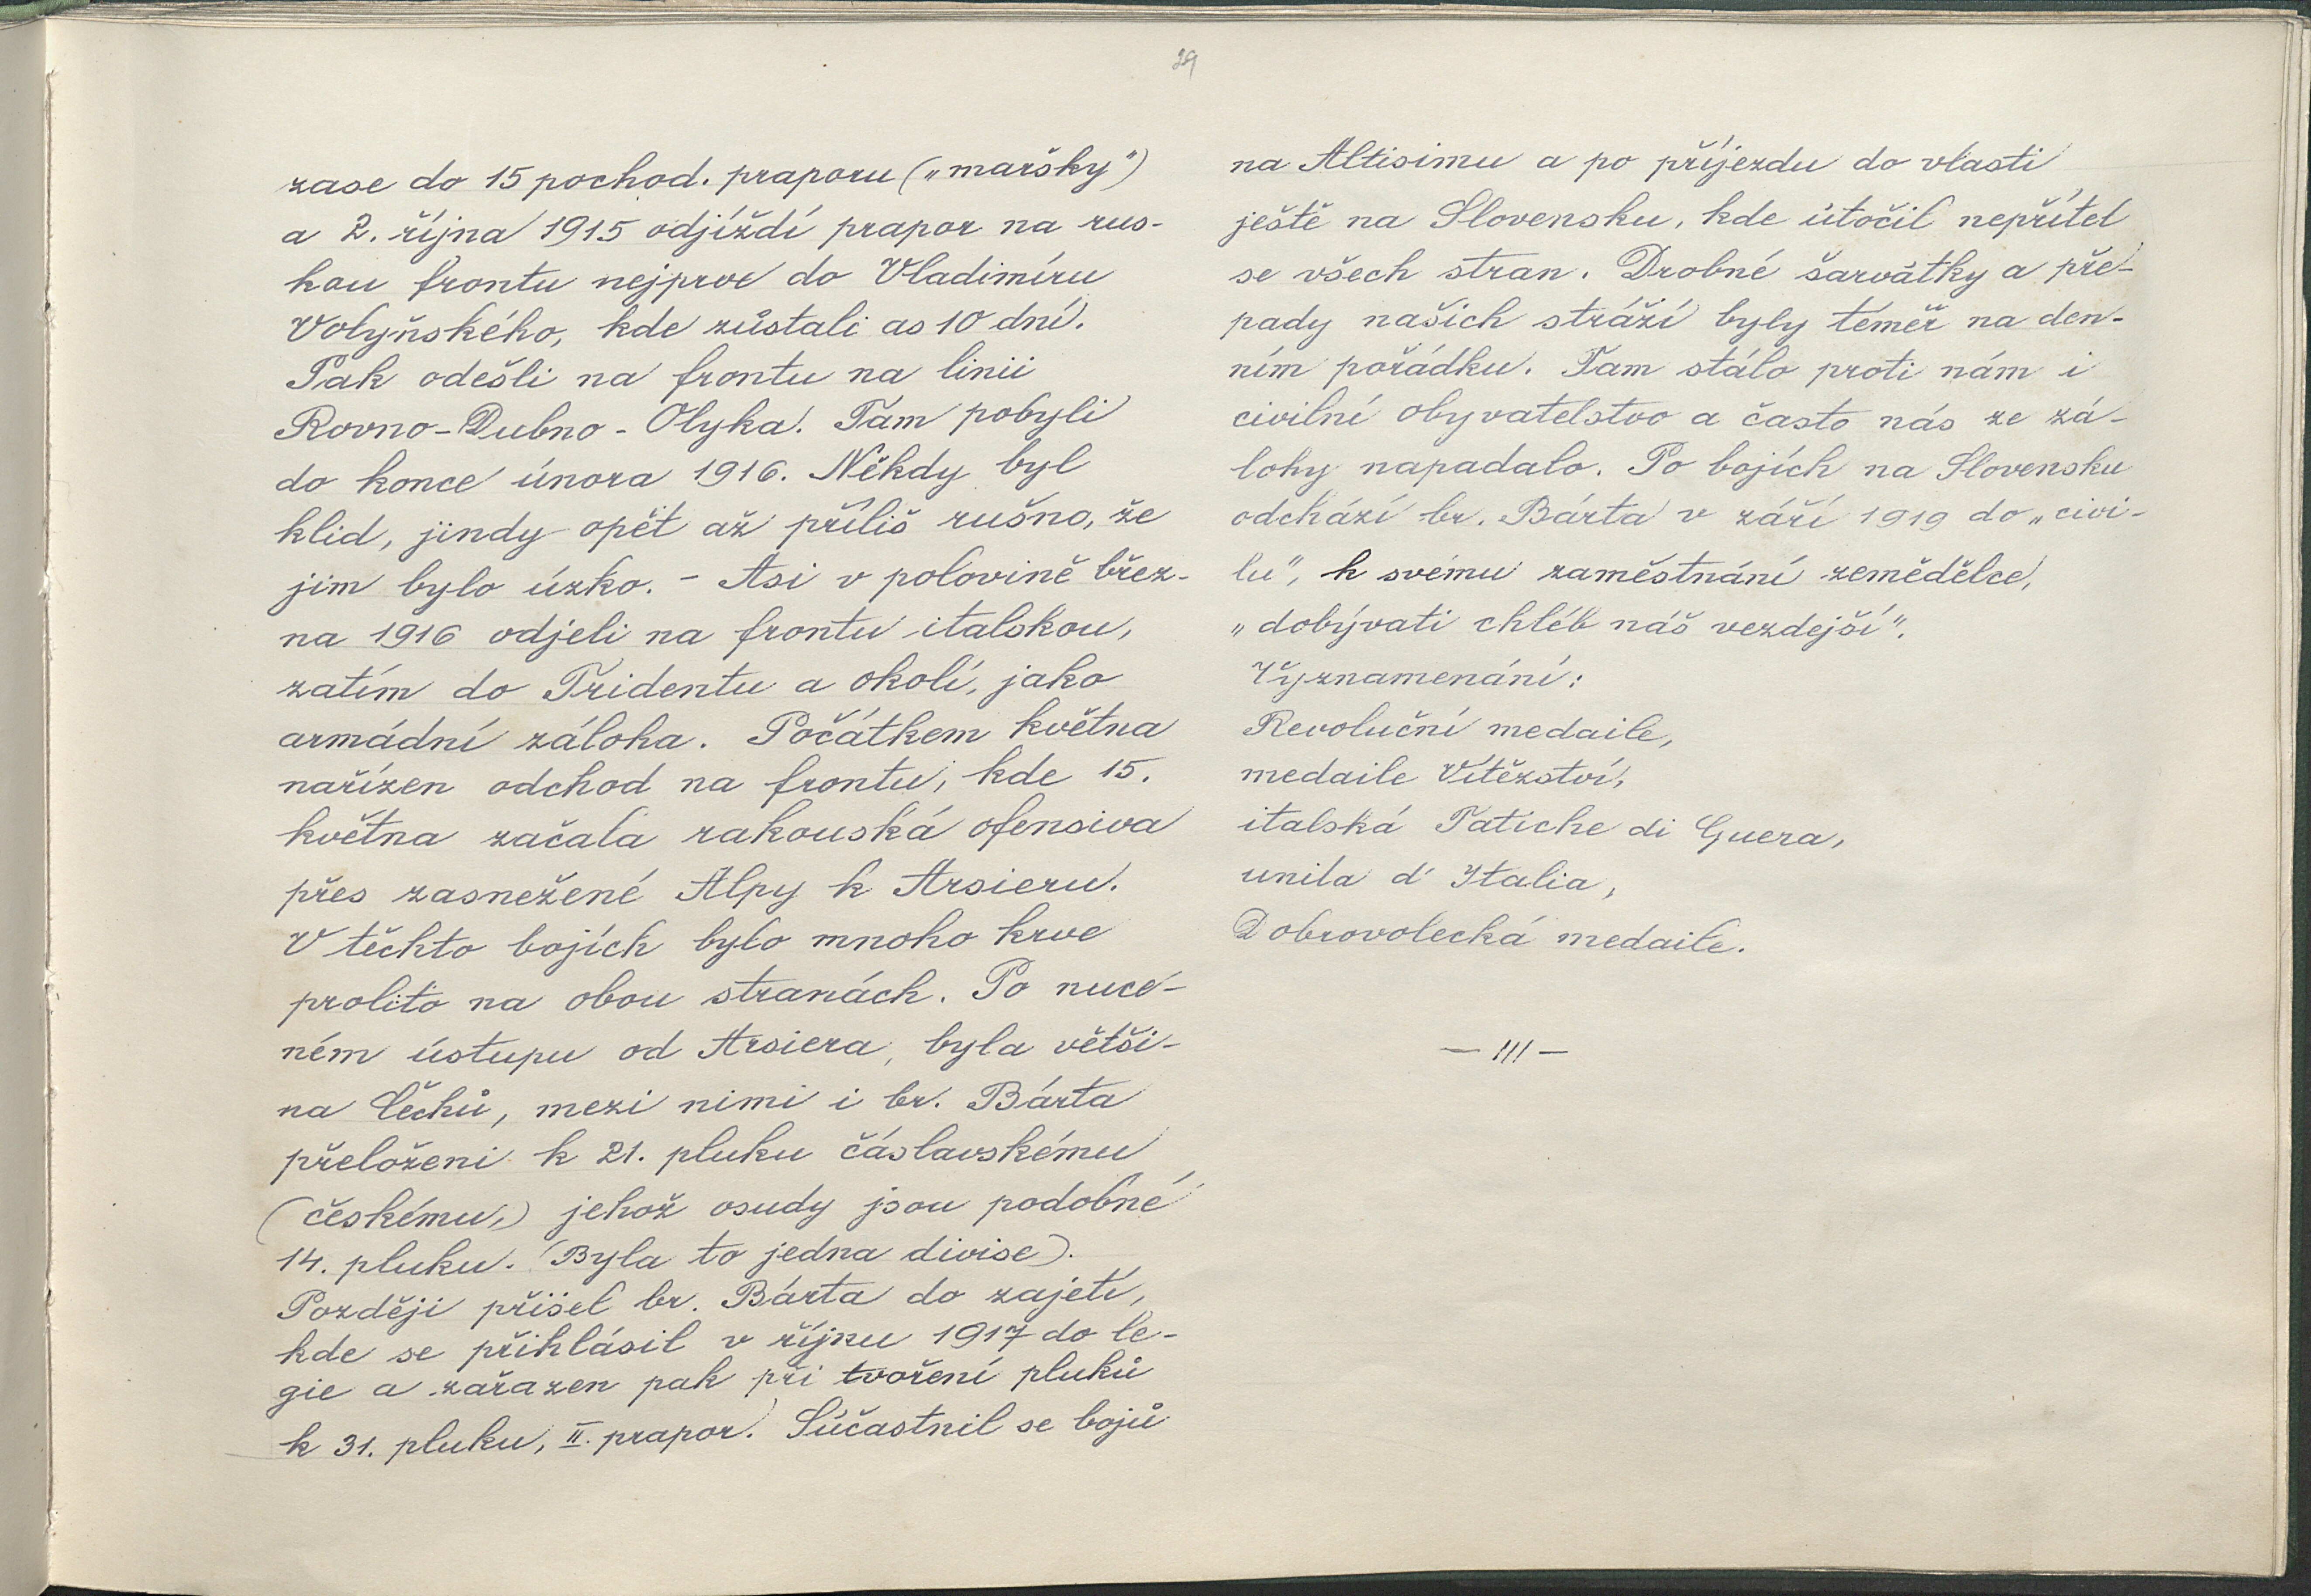 29
zase do 15 pochod. praporu („maršky")
a 2. října 1915 odjíždí prapor na rus-
kou frontu nejprve do Vladimíru
Volyňského, kde zůstali as 10 dní.
Pak odešli na frontu na linii
Rovno-Dubno-Olyka. Tam pobyli
do konce února 1916. Někdy byl
klid, jindy opět až příliš rušno, že
jim bylo úzko. - Asi v polovině břez-
na 1916 odjeli na frontu italskou,
zatím do Tridentu a okolí, jako
armádní záloha. Počátkem května
nařízen odchod na frontu, kde 15.
května začala rakouská ofensiva
přes zasnežené Alpy k Arsieru.
V těchto bojích bylo mnoho krve
prolito na obou stranách. Po nuce-
ném ústupu od Arsiera, byla větši-
na Čechů, mezi nimi i br. Bárta
přeloženi k 21. pluku čáslavskému
(českému,) jehož osudy jsou podobné
14. pluku. (Byla to jedna divise).
Později přišel br. Bárta do zajetí,
kde se přihlásil v říjnu 1917 do le-
gie a zařazen pak při tvoření pluků
k 31. pluku, II. prapor. Súčastnil se bojů
na Altisimu a po příjezdu do vlasti
ještě na Slovensku, kde útočil nepřítel
se všech stran. Drobné šarvátky a pře-
pady našich stráží byly téměř na den-
ním pořádku. Tam stálo proti nám i
civilní obyvatelstvo a často nás ze zá-
lohy napadalo. Po bojích na Slovensku
odchází br. Bárta v září 1919 do „civi-
lu", k svému zaměstnání zemědělce,
„dobývati chléb náš vezdejší".
Vyznamenání:
Revoluční medaile,
medaile Vítězství,
italská Fatiche di Guera,
unila d' Italia,
Dobrovolecká medaile.
— /// —